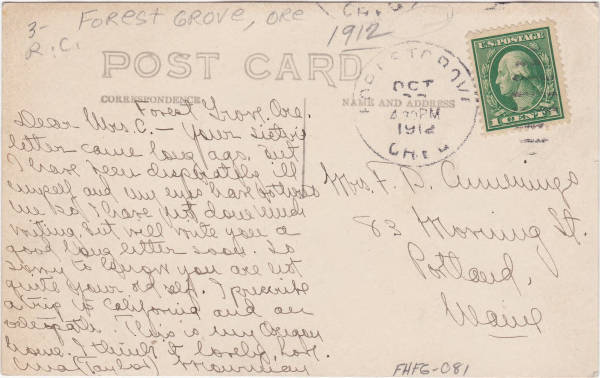 3- FOREST GROVE, ORE
R.C.
1912
POST CARD
CORRESPONDENCE
NAME AND ADDRESS
FOREST GROVE
OCT
4 PM
1912
OREG
U.S. POSTAGE
1 CENT 1
Forest Grove, Ore.
Dear Mrs. C. — Your
letter came long ago, but
I have been desperately ill
myself and my eyes have bothered
me so, I have not done much
writing, but will write you a
good long letter soon. So
sorry to learn you are not
quite your old self. I prescribe
a trip to California and an
osteopath. This is my Oregon
home. I think it lovely,
(Taylor)
Mrs. F. D. Cummings
83 Morning St.
Portland,
Maine
FHFG-081